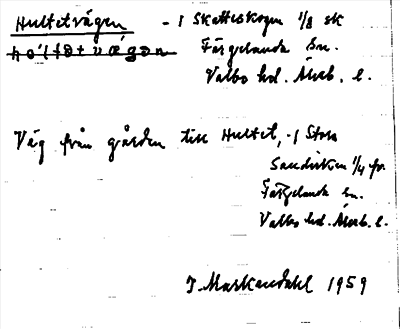 Hultetvägen - 1 Skatteskogen 1/8 sk
Färgelanda sn.
Valbo hd. Älvsb. l.
Väg från gården till Hultet, - 1 Stora
1/4 fr.
Färgelanda sn.
Valbo hd. Älvsb. l.
J. Markendahl 1959